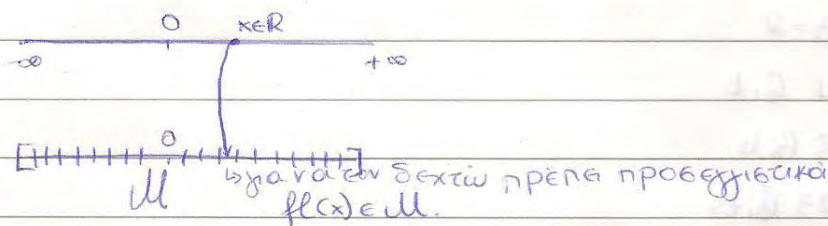 0 x∈ℝ
-∞ +∞
[ 0 ]
M ↳ για να τον δεχτώ πρέπει προσεγγιστικά
fl(x) ∈ M.